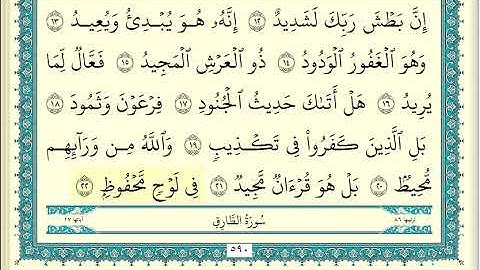 إِنَّ بَطْشَ رَبِّكَ لَشَدِيدٌ ١٢ إِنَّهُۥ هُوَ يُبْدِئُ وَيُعِيدُ ١٣
وَهُوَ ٱلْغَفُورُ ٱلْوَدُودُ ١٤ ذُو ٱلْعَرْشِ ٱلْمَجِيدُ ١٥ فَعَّالٌ لِّمَا
يُرِيدُ ١٦ هَلْ أَتَىٰكَ حَدِيثُ ٱلْجُنُودِ ١٧ فِرْعَوْنَ وَثَمُودَ ١٨
بَلِ ٱلَّذِينَ كَفَرُوا۟ فِى تَكْذِيبٍ ١٩ وَٱللَّهُ مِن وَرَآئِهِم
مُّحِيطٌۢ ٢٠ بَلْ هُوَ قُرْءَانٌ مَّجِيدٌ ٢١ فِى لَوْحٍ مَّحْفُوظٍۭ ٢٢
ترتيبها ٨٦ سُورَةُ الطَّارِقِ آياتها ١٧
٥٩٠